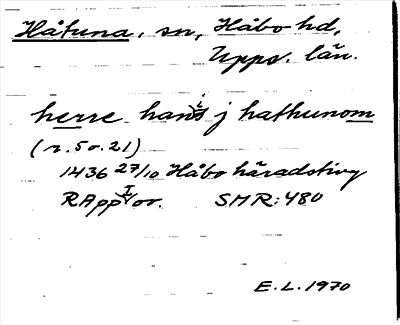 Håtuna, sn, Håbo hd,
Upps. län.
herre hans j hathunom
(r. 5 o. 21)
1436 27/10 Håbo häradsting
RApp I or. SMR: 480
E.L. 1970